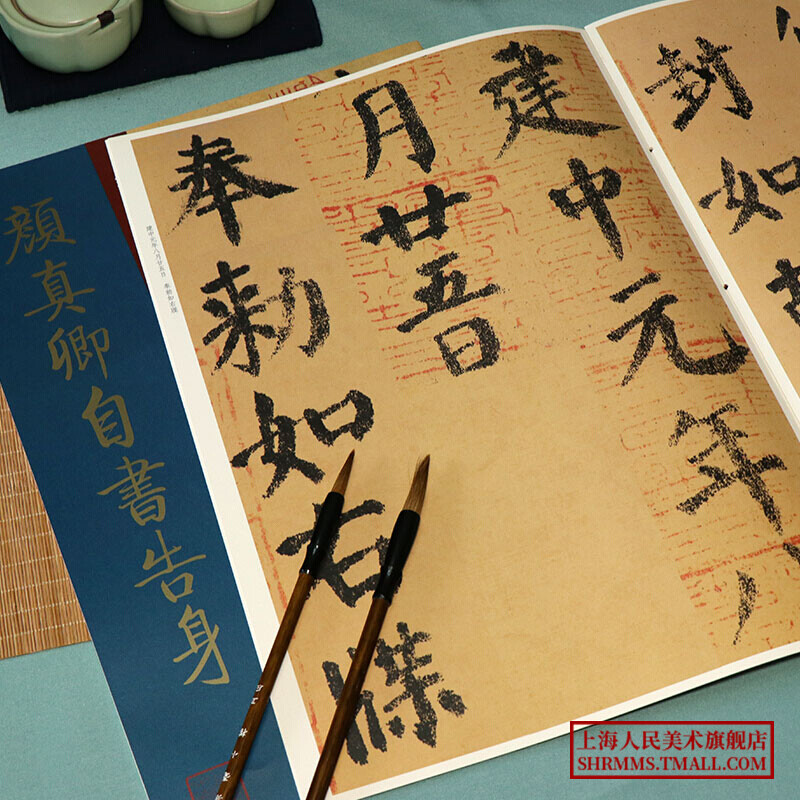 封如
建中元年八
月廿五日
奉勅如右牒
建中元年八月廿五日 奉勅如右牒
顔真卿自書告身
上海人民美术旗舰店
SHRMMS.TMALL.COM